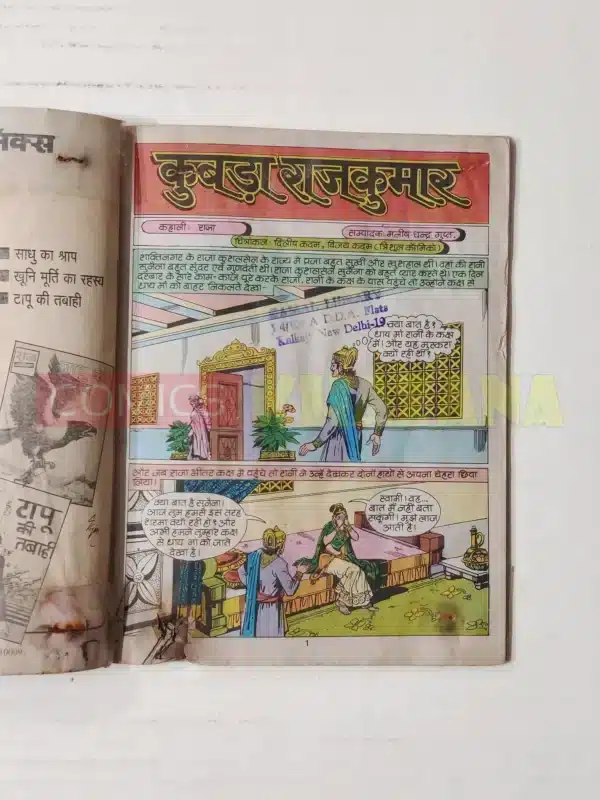 मिक्स
साधु का श्राप
खूनि मूर्ति का रहस्य
टापू की तबाही
टापू
की
तबाही
कुबड़ा राजकुमार
कहानी: राजा
सम्पादक: मनीष चन्द्र गुप्त,
चित्रांकन: दिलीप कदम, विजय कदम (त्रिशूल कॉमिको)
शक्तिनगर के राजा कुशलसेन के राज्य में प्रजा बहुत सुखी और खुशहाल थी। वहां की रानी
सुनैना बहुत सुंदर एवं गुणवंती थी। राजा कुशलसेन सुनैना को बहुत प्यार करते थे। एक दिन
दरबार के सारे काम-काज पूरे करके राजा, रानी के कक्ष के पास पहुंचे तो उन्होंने कक्ष से
धाय मां को बाहर निकलते देखा-
D.D.A. Flats
Kalkaji New Delhi-19
क्या बात है?
धाय मां रानी के कक्ष
में। और यह मुस्करा
क्यों रही थीं?
COMICS
और जब राजा भीतर कक्ष में पहुंचे तो रानी ने उन्हें देखकर दोनों हाथों से अपना चेहरा छिपा
लिया।
क्या बात है सुनैना।
आज तुम हमसे इस तरह
शरमा क्यों रही हो? और
अभी हमने तुम्हारे कक्ष
से धाय मां को जाते
देखा है।
स्वामी। वह..
बात मैं नहीं बता
सकूंगी। मुझे लाज
आती है।
1